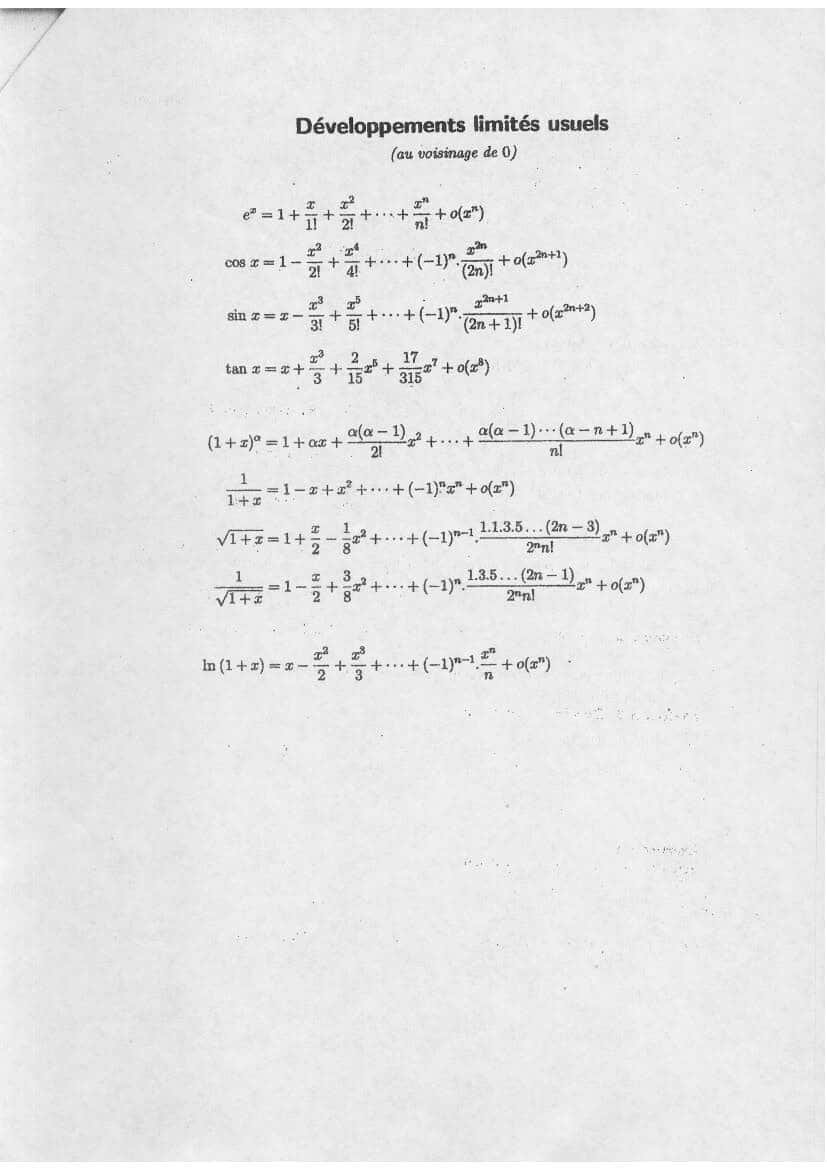 Développements limités usuels
(au voisinage de 0)
e^x = 1 + x/1! + x^2/2! + ··· + x^n/n! + o(x^n)
cos x = 1 − x^2/2! + x^4/4! + ··· + (−1)^n.x^{2n}/(2n)! + o(x^{2n+1})
sin x = x − x^3/3! + x^5/5! + ··· + (−1)^n.x^{2n+1}/(2n+1)! + o(x^{2n+2})
tan x = x + x^3/3 + 2/15 x^5 + 17/315 x^7 + o(x^8)
(1 + x)^α = 1 + αx + α(α − 1)/2! x^2 + ··· + α(α − 1)···(α − n + 1)/n! x^n + o(x^n)
1/(1 + x) = 1 − x + x^2 + ··· + (−1)^n x^n + o(x^n)
√(1 + x) = 1 + x/2 − 1/8 x^2 + ··· + (−1)^{n−1}.1.1.3.5...(2n − 3)/2^n n! x^n + o(x^n)
1/√(1 + x) = 1 − x/2 + 3/8 x^2 + ··· + (−1)^n.1.3.5...(2n − 1)/2^n n! x^n + o(x^n)
ln (1 + x) = x − x^2/2 + x^3/3 + ··· + (−1)^{n−1}.x^n/n + o(x^n)